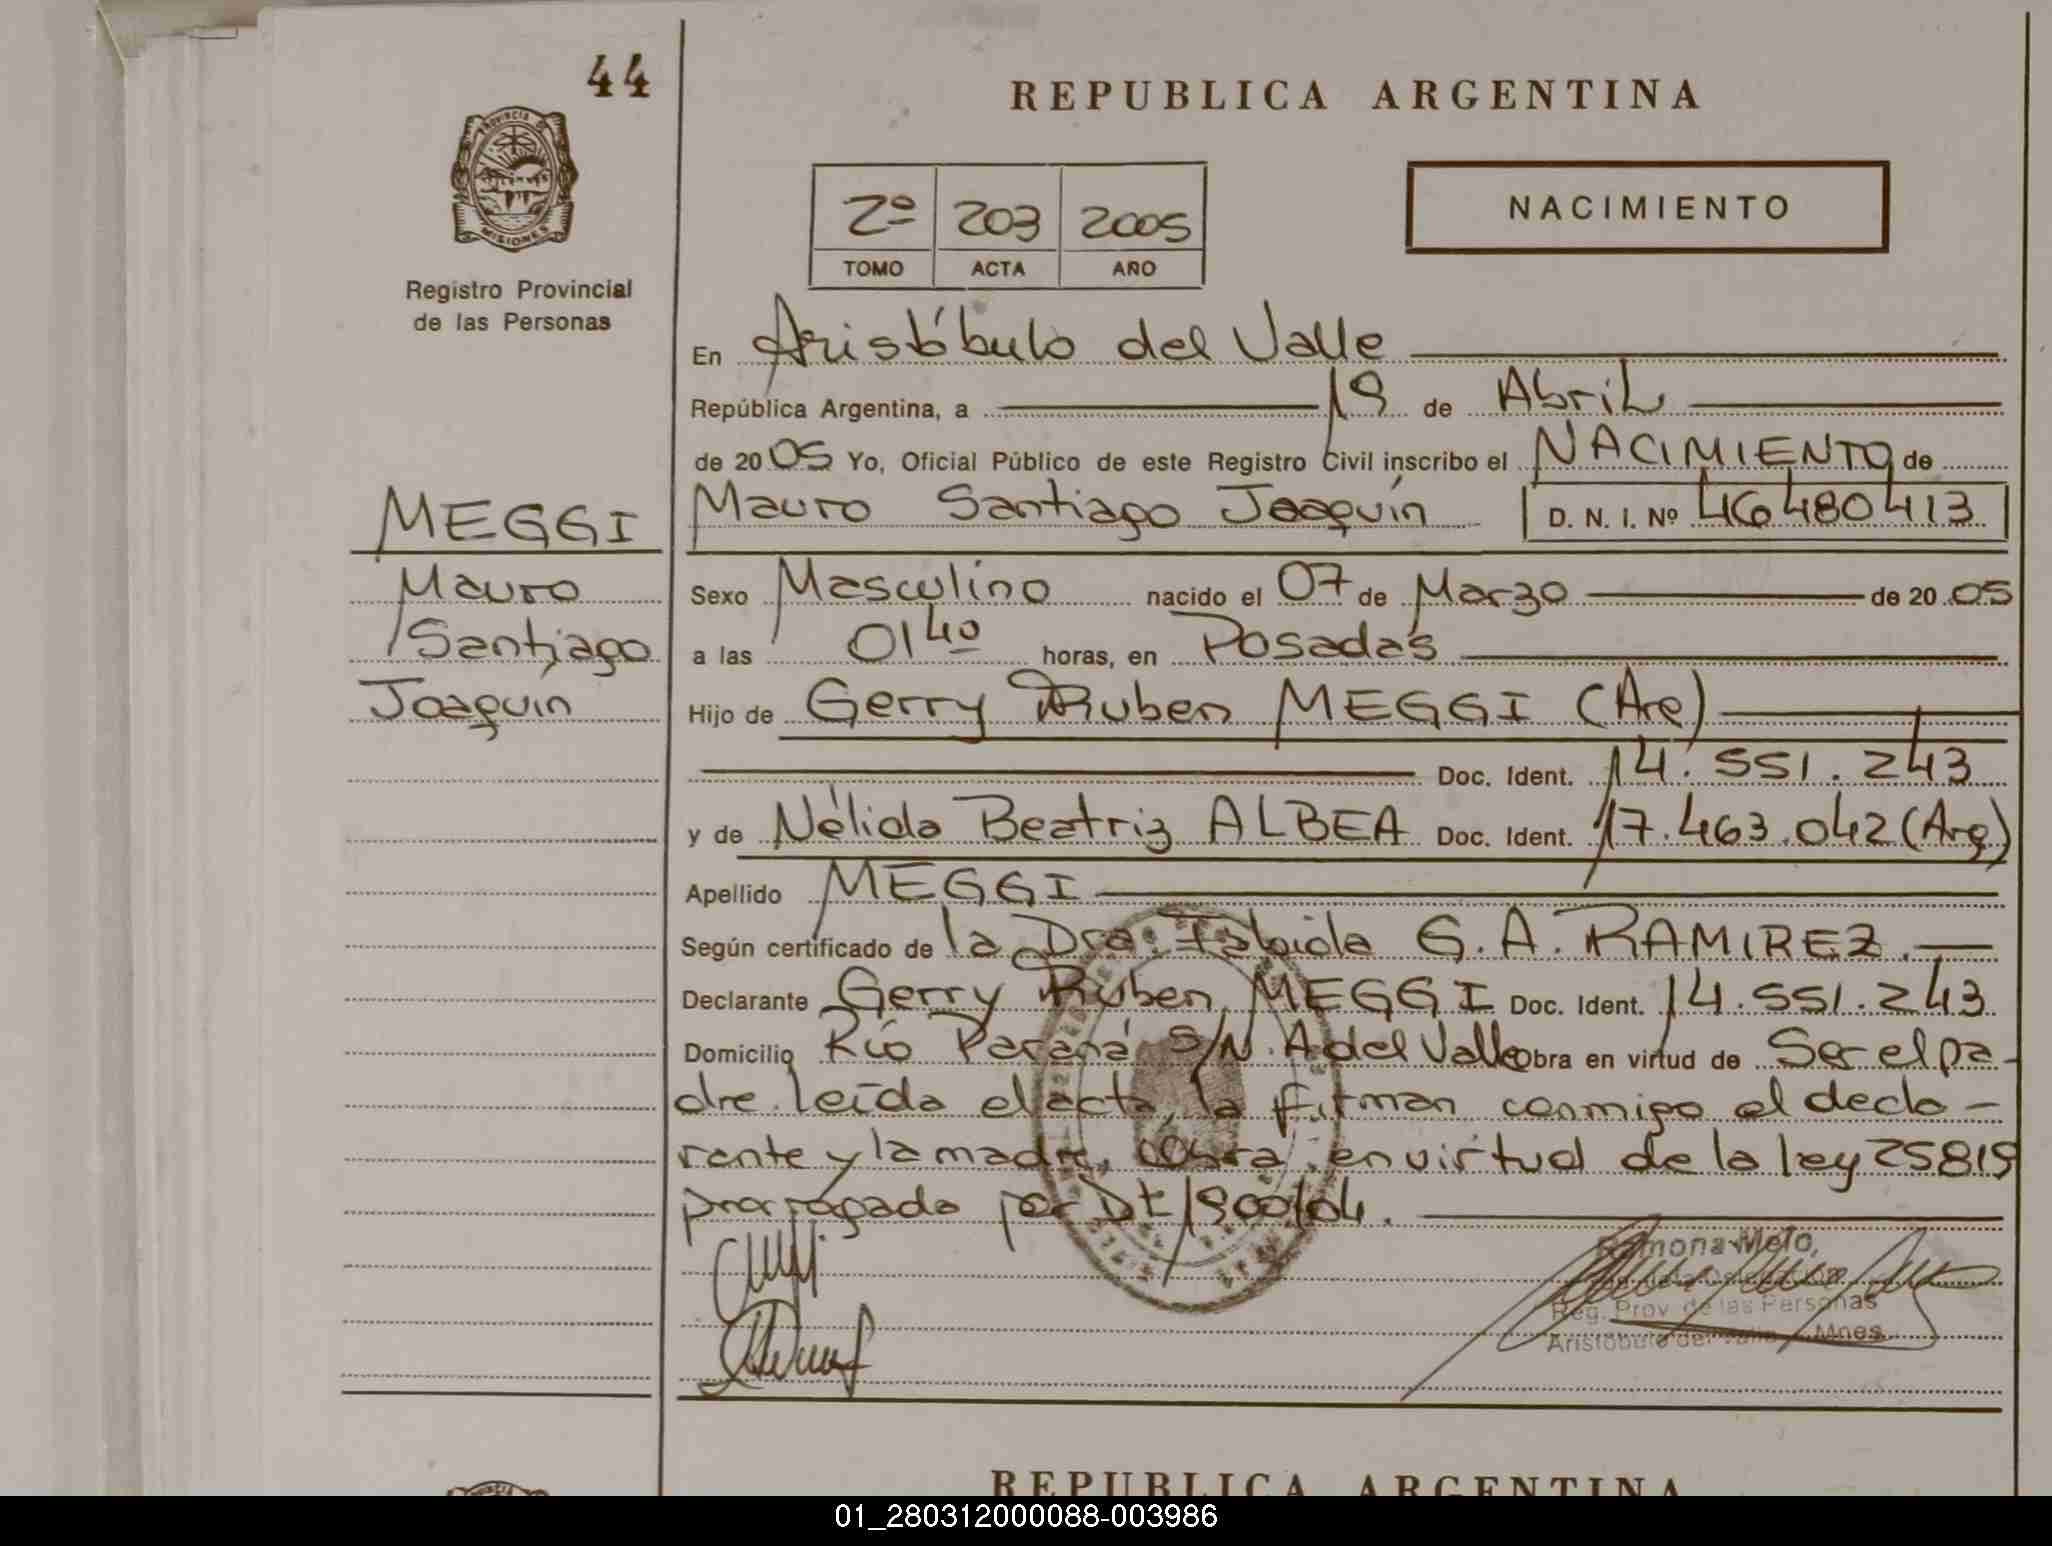 44
REPUBLICA ARGENTINA
PROVINCIA DE
MISIONES
Registro Provincial
de las Personas
2º 203 2005
TOMO ACTA AÑO
NACIMIENTO
En Aristóbulo del Valle
República Argentina, a 19 de Abril
de 2005 Yo, Oficial Público de este Registro Civil inscribo el NACIMIENTO de
Mauro Santiago Joaquín D. N. I. Nº 46480413
MEGGI
Mauro
Santiago
Joaquin
Sexo Masculino nacido el 07 de Marzo de 2005
a las 01 40 horas, en Posadas
Hijo de Gerry Ruben MEGGI (Arg)
Doc. Ident. 14.551.243
y de Nélida Beatriz ALBEA Doc. Ident. 17.463.042 (Arg)
Apellido MEGGI
Según certificado de la Dra. G. A. RAMIREZ.
Declarante Gerry Ruben MEGGI Doc. Ident. 14.551.243
Domicilio Río Paraná S/N. A del Valle obra en virtud de Ser el pa-
dre. Leída el acta, la firman conmigo el decla-
rante y la madre, obra en virtud de la ley 25819
prorrogada por Dt 1900/04.
Ramona Melo,
Reg. Prov. de las Personas
Aristóbulo del Valle Mnes.
REPUBLICA ARGENTINA
01_280312000088-003986